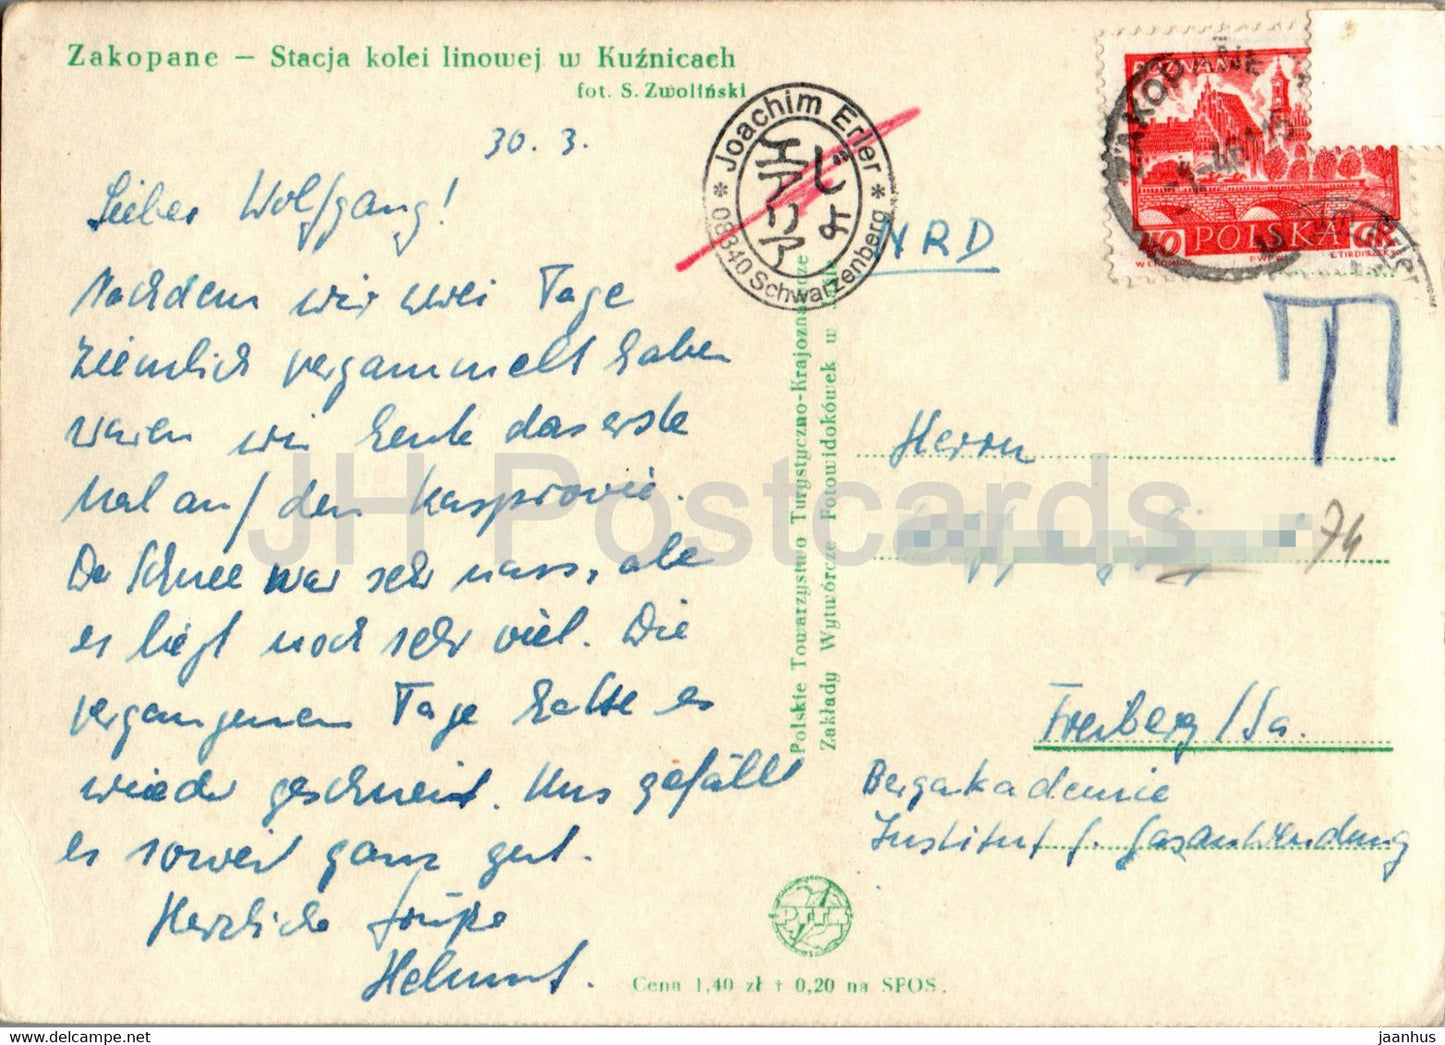 Zakopane – Stacja kolei linowej w Kuźnicach
fot. S. Zwoliński
30. 3.
Lieber Wolfgang!
Nachdem wir zwei Tage
ziemlich vergammelt haben
waren wir heute das erste
Mal auf den Kasprovic.
Der Schnee war sehr nass, aber
es liegt noch sehr viel. Die
vergangenen Tage hatte es
wieder geschneit. Uns gefällt
es soweit ganz gut.
Herzliche Grüße
Helmut.
Cena 1,40 zł + 0,20 na SFOS.
Joachim Erler
* 08340 Schwarzenberg *
Polskie Towarzystwo Turystyczno-Krajoznawcze
Zakłady Wytwórcze Fotowidokówek w
PTTK
NRD
ZAKOPANE
POZNAŃ
40 POLSKA GR
Erler
T
Herrn
74
Freiberg/Sa.
Bergakademie
Institut f. Gasanwendung
JH Postcards
jaanhus